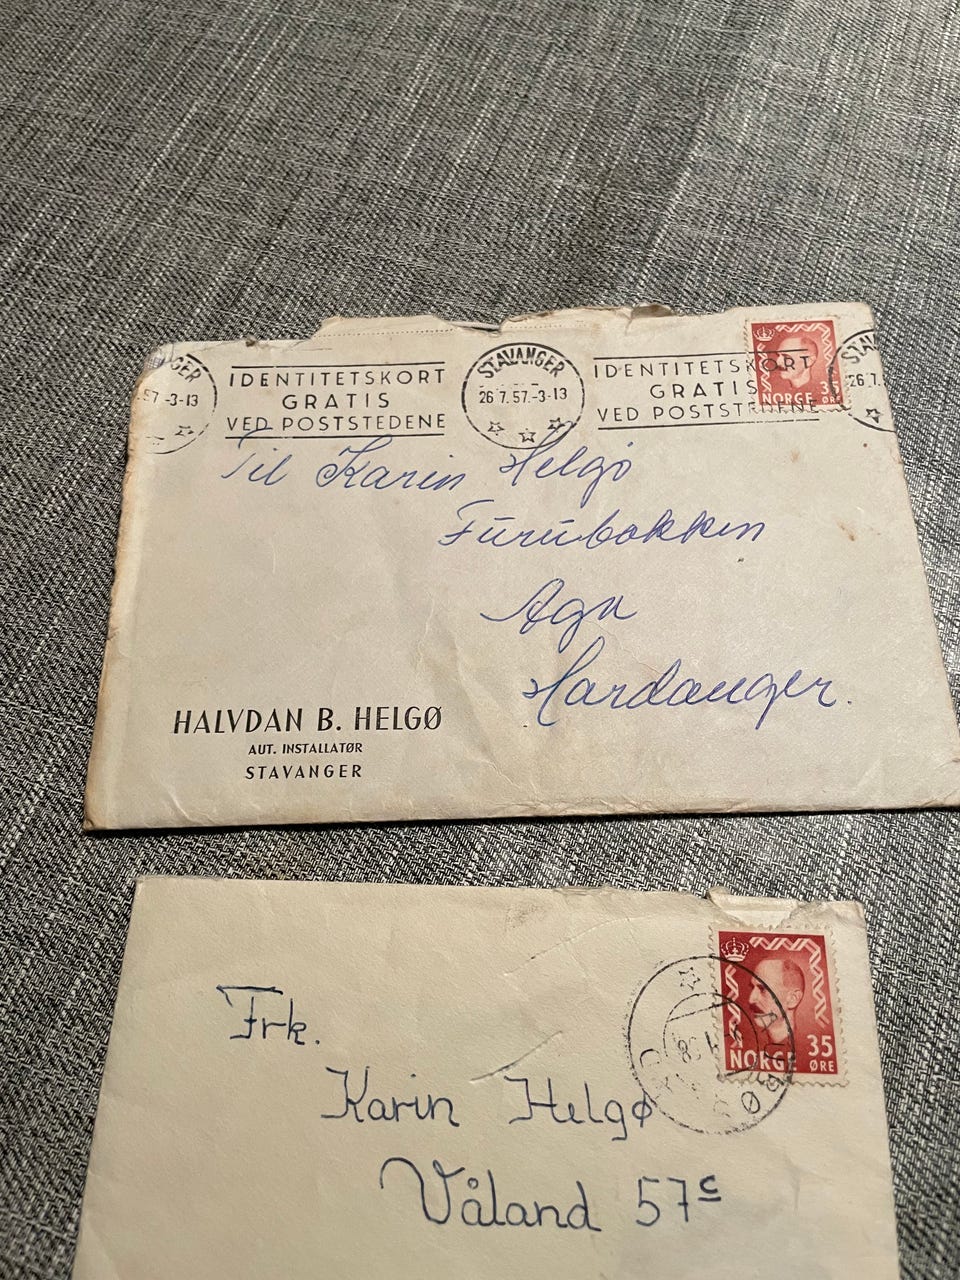 GER
57-3-13
IDENTITETSKORT
GRATIS
VED POSTSTEDENE
STAVANGER
26 7.57.-3-13
IDENTITETSKORT
GRATIS
VED POSTSTEDENE
NORGE 35 ØRE
STA
26.7.
Til Karin Helgø
Furubakken
Aga
Hardanger.
HALVDAN B. HELGØ
AUT. INSTALLATØR
STAVANGER
NORGE 35 ØRE
Frk.
Karin Helgø
Våland 57c